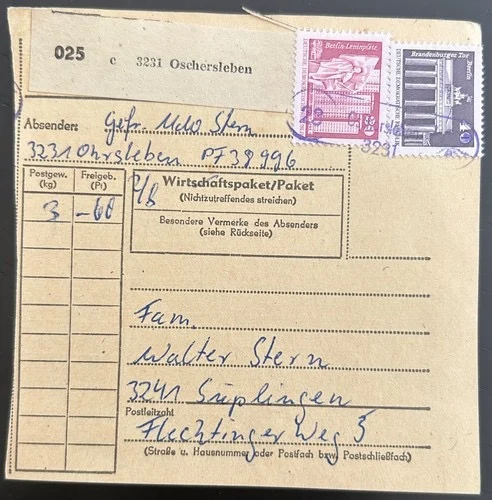 025 c 3231 Oschersleben
Berlin-Leninplatz
Brandenburger Tor Berlin
40
3231
Absender: Gefr. Udo Stern
3231 Ohrsleben PF 38996
Postgew. (kg)
Freigeb. (Pf)
3 -60
Wirtschaftspaket/Paket
(Nichtzutreffendes streichen)
Besondere Vermerke des Absenders
(siehe Rückseite)
Fam.
Walter Stern
3241 Süplingen
Postleitzahl
Flechtinger Weg 5
(Straße u. Hausnummer oder Postfach bzw. Postschließfach)